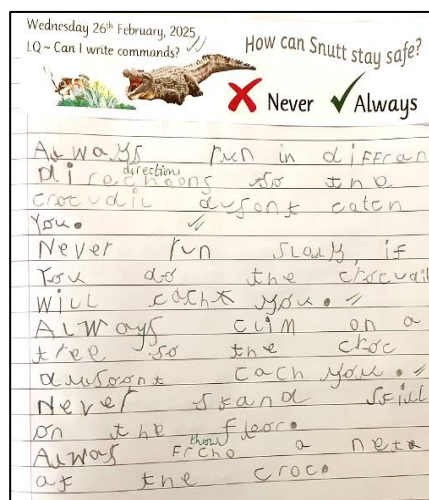 Wednesday 26th February, 2025
LQ ~ Can I write commands?
How can Snutt stay safe?
Never Always
Always run in diffran
direction
direchoons so the
crocudil dusont catch
you.
Never run slowly, if
you do the crocudil
will catch you.
Always clim on a
tree so the croc
dusoont cach you.
Never stand still
on the floor.
throw
Always a net
at the croc.